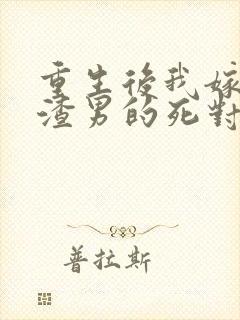 重生後我嫁
渣男的死對
普拉斯